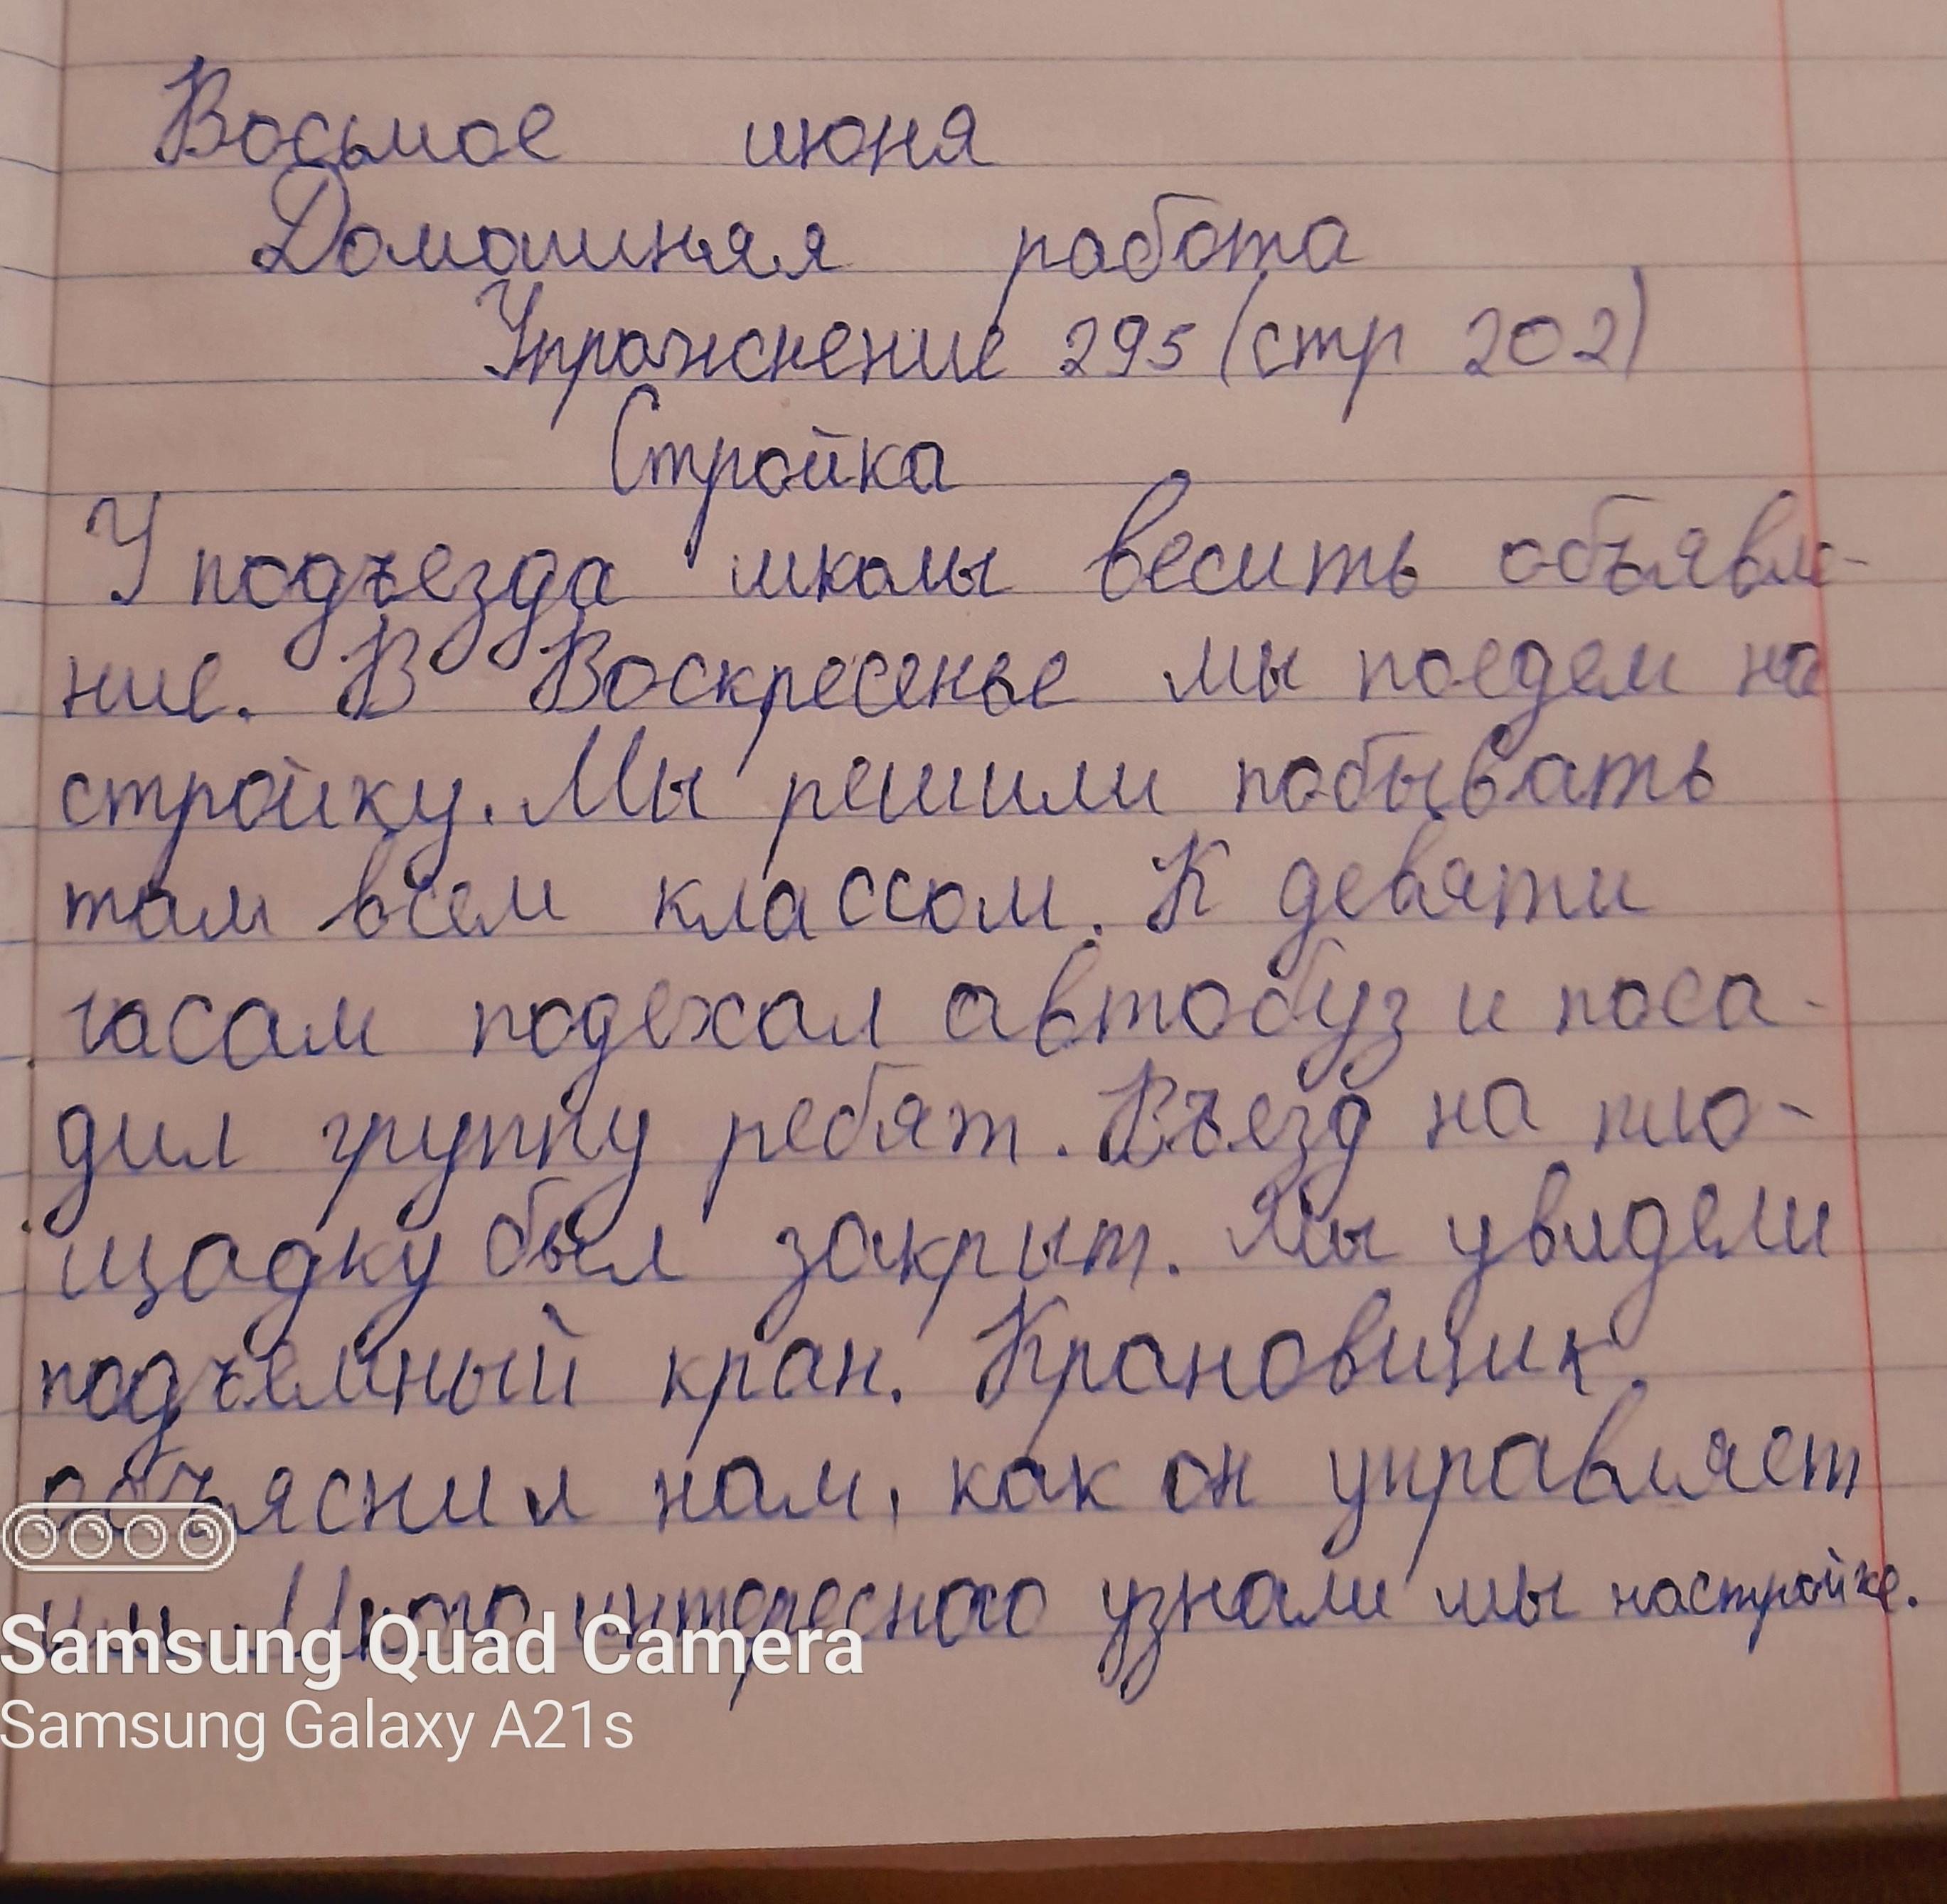 Восьмое июня
Домашняя работа
Упражнение 295 (стр 202)
Стройка
У подъезда школы весить объявле-
ние. В Воскресенье мы поедем на
стройку. Мы решили побывать
там всем классом. К девяти
часам подехал автобуз и поса-
дил группу ребят. Въезд на пло-
щадку был закрыт. Мы увидели
подъемный кран. Крановщик
объяснил нам, как он управляет
им. Много интересного узнали мы настройке.
Samsung Quad Camera
Samsung Galaxy A21s